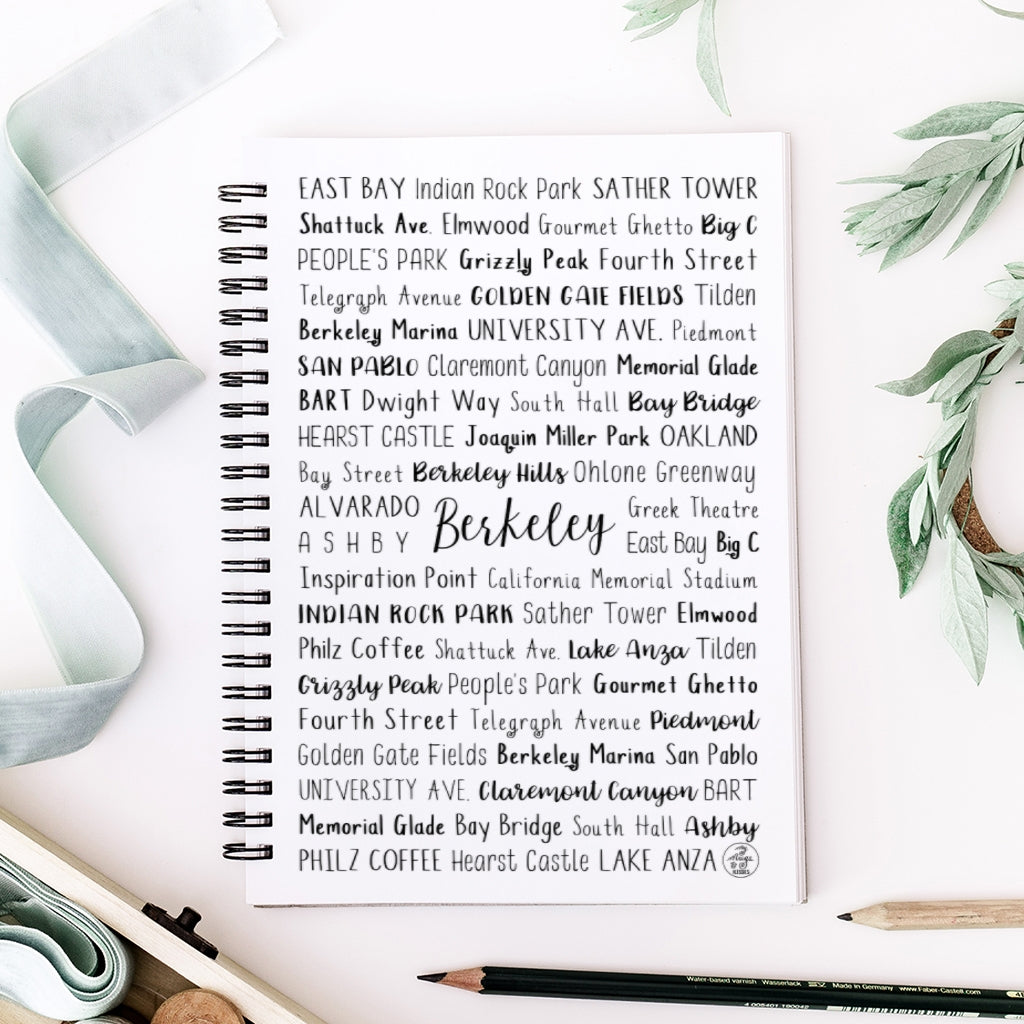 EAST BAY Indian Rock Park SATHER TOWER
Shattuck Ave. Elmwood Gourmet Ghetto Big C
PEOPLE'S PARK Grizzly Peak Fourth Street
Telegraph Avenue GOLDEN GATE FIELDS Tilden
Berkeley Marina UNIVERSITY AVE. Piedmont
SAN PABLO Claremont Canyon Memorial Glade
BART Dwight Way South Hall Bay Bridge
HEARST CASTLE Joaquin Miller Park OAKLAND
Bay Street Berkeley Hills Ohlone Greenway
ALVARADO Berkeley Greek Theatre
ASHBY East Bay Big C
Inspiration Point California Memorial Stadium
INDIAN ROCK PARK Sather Tower Elmwood
Philz Coffee Shattuck Ave. Lake Anza Tilden
Grizzly Peak People's Park Gourmet Ghetto
Fourth Street Telegraph Avenue Piedmont
Golden Gate Fields Berkeley Marina San Pablo
UNIVERSITY AVE. Claremont Canyon BART
Memorial Glade Bay Bridge South Hall Ashby
PHILZ COFFEE Hearst Castle LAKE ANZA
Water-based varnish Wasserlack Made in Germany www.Faber-Castell.com
4 005401 190042